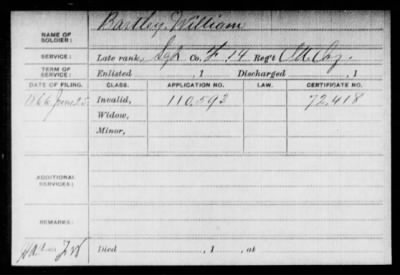 NAME OF SOLDIER: Bartley, William
SERVICE: Late rank, Sgt Co. F 14 Reg't Ill. Cav.
TERM OF SERVICE: Enlisted , 1 Discharged , 1
DATE OF FILING. CLASS. APPLICATION NO. LAW. CERTIFICATE NO.
1866 June 25 Invalid, 110,593 72,418
Widow,
Minor,
ADDITIONAL SERVICES:
REMARKS:
Died , 1 , at